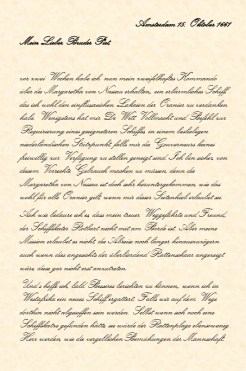 Amsterdam 15. Oktober 1661
Mein Lieber Bruder Piet,
vor zwei Wochen habe ich nun mein zweifelhaftes Kommando
über die Margaretha von Nassau erhalten, ein erbärmliches Schiff,
das ich wohl den einflussreichen Lakaien der Oranier zu verdanken
habe. Wenigstens hat mir De Witt Vollmacht und Befehl zur
Requirierung eines geeigneteren Schiffes in einem beliebigen
niederländischen Stützpunkt falls mir die Gouverneure keines
freiwillig zur Verfügung zu stellen geneigt sind. Ich bin sicher von
diesem Gebrauch machen zu müssen, denn die
Margaretha von Nassau ist doch sehr heruntergekommen, was das
wohl für alle Oranier gilt, wenn mir dieser Seitenhieb erlaubt ist.
Ach was bedaure ich es dass mein treuer Weggefährte und Freund,
der Schiffskater Rotbart nicht mit an Bord ist. Aber meine
Mission erlaubt es nicht, die Abreise noch länger hinauszuzögern
auch wenn das angesichts der Rattenschaar angezeigt
wäre, dass gar nicht erst anzutreten.
Und's hoffe ich, bald Besseres berichten zu können, wenn ich in
Westafrika ein neues Schiff ergattert. Falls wir auf dem Wege
dorthin nicht abgesoffen sein werden. Selbst wenn sich noch eine
Schiffskatze gefunden hätte, sie würde der Rattenplage ebensowenig
Herr werden, wie die vergeblichen Bemühungen der Mannschaft